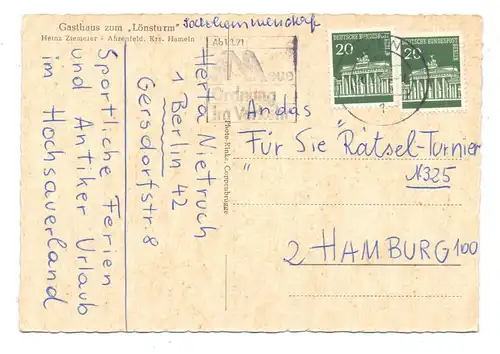 Gasthaus zum „Lönsturm“
Heinz Ziemerer - Ahrenfeld, Krs. Hameln
Sportliche Ferien
und Antiker Urlaub
im Hochsauerland
Herta Nietruch
1 Berlin 42
Gersdorfstr. 8
Photo-Rinke, Coppenbrügge
Ab 1.3.71
neue
Ordnung
im
DEUTSCHE BUNDESPOST
BERLIN
20
DEUTSCHE BUNDESPOST
BERLIN
20
An das
"Für Sie" Rätsel-Turnier
N325
2 HAMBURG 100